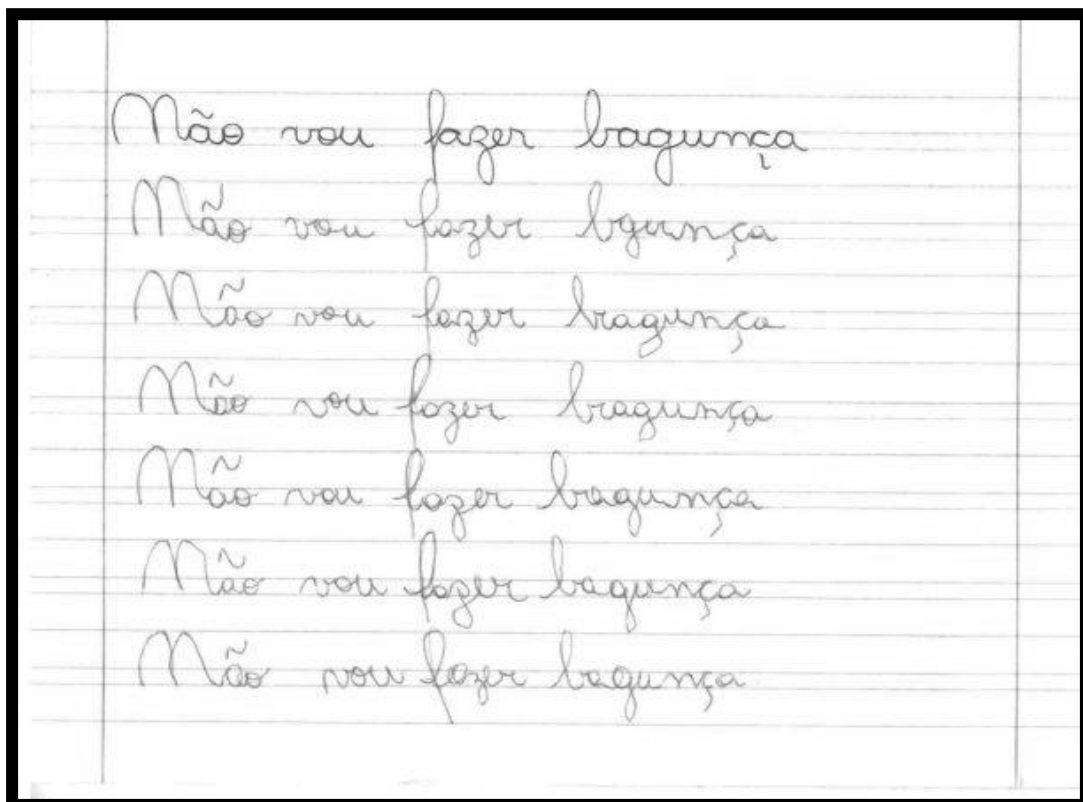 Não vou fazer bagunça
Não vou fazer bgunça
Não vou fazer bragunça
Não vou fazer bragunça
Não vou fazer bagunça
Não vou fazer bagunça
Não vou fazer bagunça